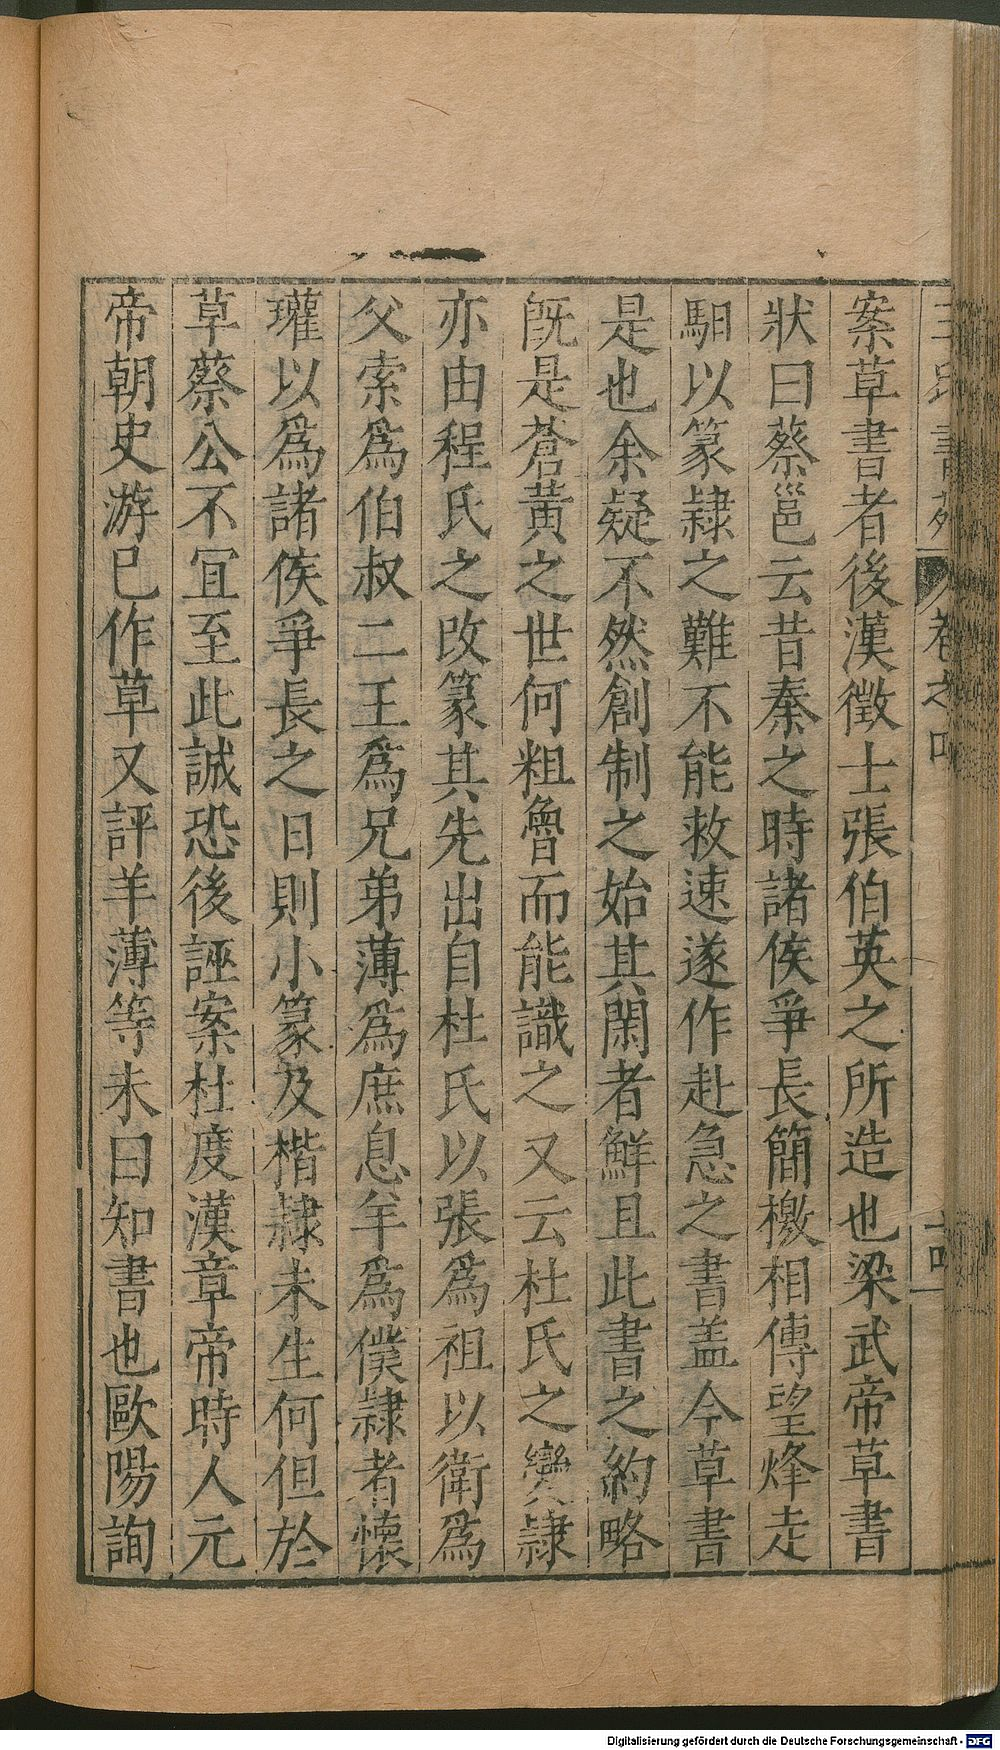 案草書者後漢徵士張伯英之所造也梁武帝草書
狀曰蔡邕云昔秦之時諸侯爭長簡檄相傳望烽走
馹以篆隷之難不能救速遂作赴急之書盖今草書
是也余疑不然創制之始其閑者鮮且此書之約略
旣是蒼黃之世何粗魯而能識之又云杜氏之變隷
亦由程氏之改篆其先出自杜氏以張爲祖以衛爲
父索爲伯叔二王爲兄弟薄爲庶息羊爲僕隷者懷
瓘以爲諸侯爭長之日則小篆及楷隷未生何但於
草蔡公不宜至此誠恐後誣案杜度漢章帝時人元
帝朝史游已作草又評羊薄等未曰知書也歐陽詢
卷之四
十四
Digitalisierung gefördert durch die Deutsche Forschungsgemeinschaft - DFG